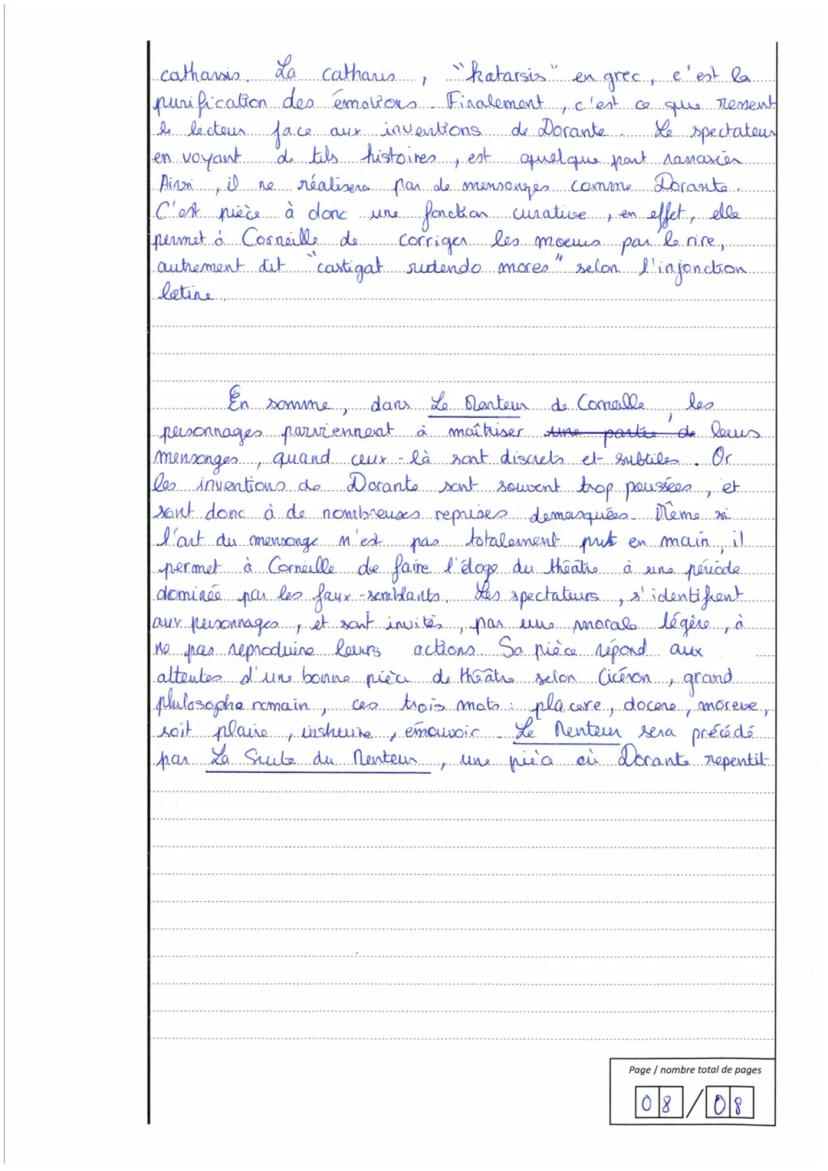 catharsis. La catharis, "katarsis" en grec, c'est la
purification des émotions. Finalement, c'est ce que ressent
le lecteur face aux inventions de Dorante. Le spectateur
en voyant de tels histoires, est quelque part rassasier
Ainsi, il ne réalisera pas de mensonges comme Dorante.
C'est pièce à donc une fonction curative, en effet, elle
permet à Corneille de corriger les moeurs par le rire,
autrement dit "castigat rudendo mores" selon l'injonction
latine.
En somme, dans Le Menteur de Corneille, les
personnages parviennent à maîtriser une partie de leurs
mensonges, quand ceux-là sont discrets et subtiles. Or
les inventions de Dorante sont souvent trop poussées, et
sont donc à de nombreuses reprises demasquées. Même si
l'art du mensonge n'est pas totalement prit en main, il
permet à Corneille de faire l'éloge du théâtre à une période
dominée par les faux-semblants. Les spectateurs, s'identifient
aux personnages, et sont invités, par une morale légère, à
ne pas reproduire leurs actions. Sa pièce répond aux
attentes d'une bonne pièce de théâtre selon Cicéron, grand
philosophe romain, ces trois mots : placere, docere, movere,
soit plaire, instruire, émouvoir. Le Menteur sera précédé
par La Suite du Menteur, une pièce où Dorante repentit
Page / nombre total de pages
08/08